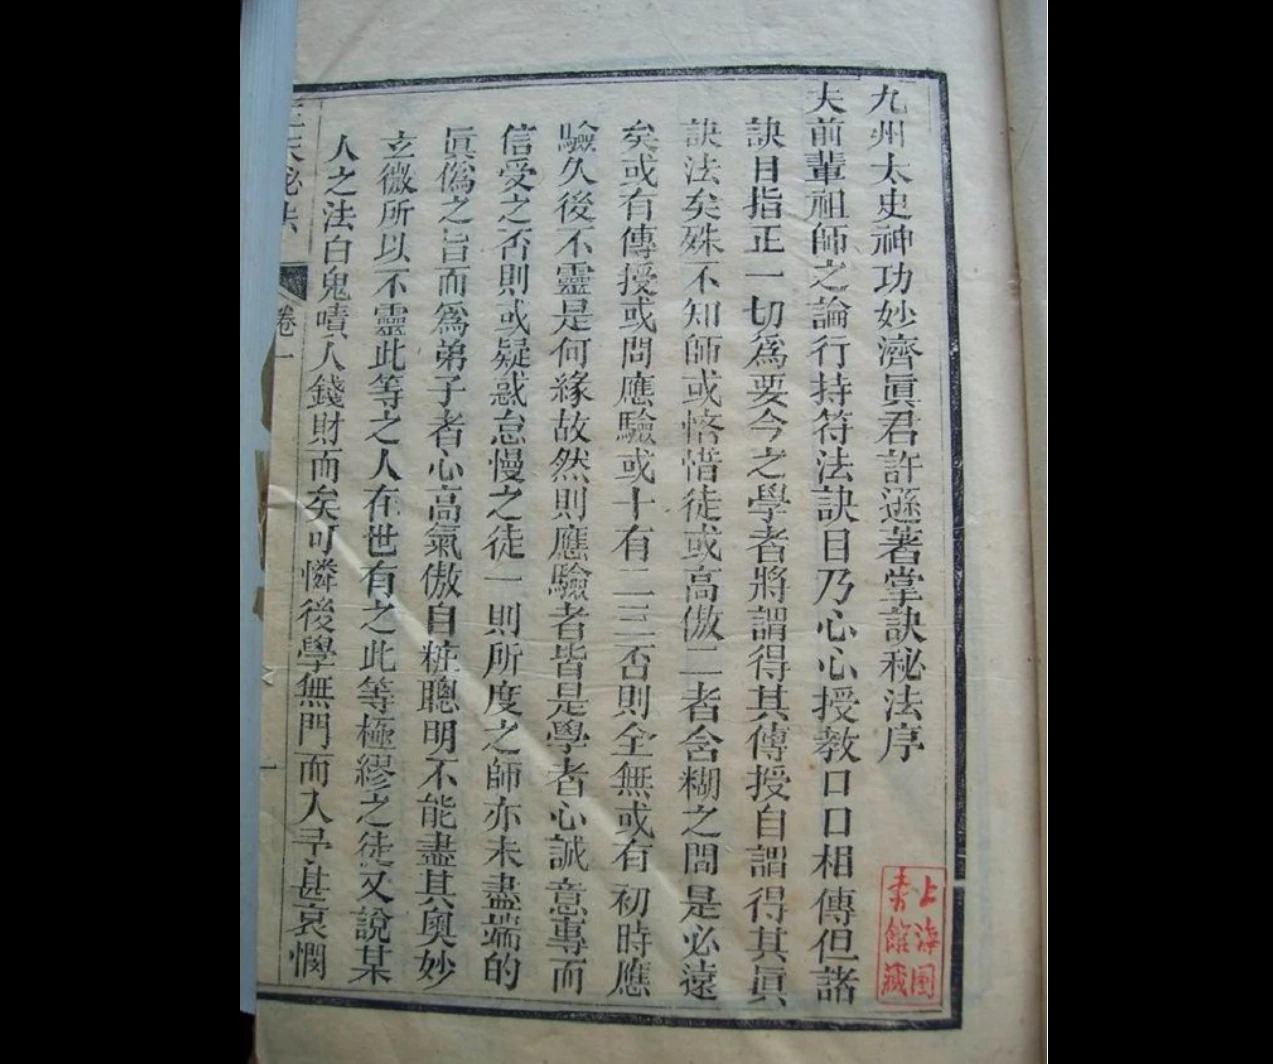 九州太史神功妙濟眞君許遜著掌訣秘法序
夫前輩祖師之論行持符法訣目乃心心授教口口相傳但諸
訣目指正一切爲要今之學者將謂得其傳授自謂得其眞
訣法矣殊不知師或悋惜徒或高傲二者含糊之間是必遠
矣或有傳授或問應驗或十有二三否則全無或有初時應
驗久後不靈是何緣故然則應驗者皆是學者心誠意專而
信受之否則或疑惑怠慢之徒一則所度之師亦未盡端的
眞僞之旨而爲弟子者心高氣傲自粧聰明不能盡其奧妙
立微所以不靈此等之人在世有之此等極繆之徒又說某
人之法白鬼嘖人錢財而矣可憐後學無門而入予甚哀憫
秘法 卷一
上海圖
書館藏